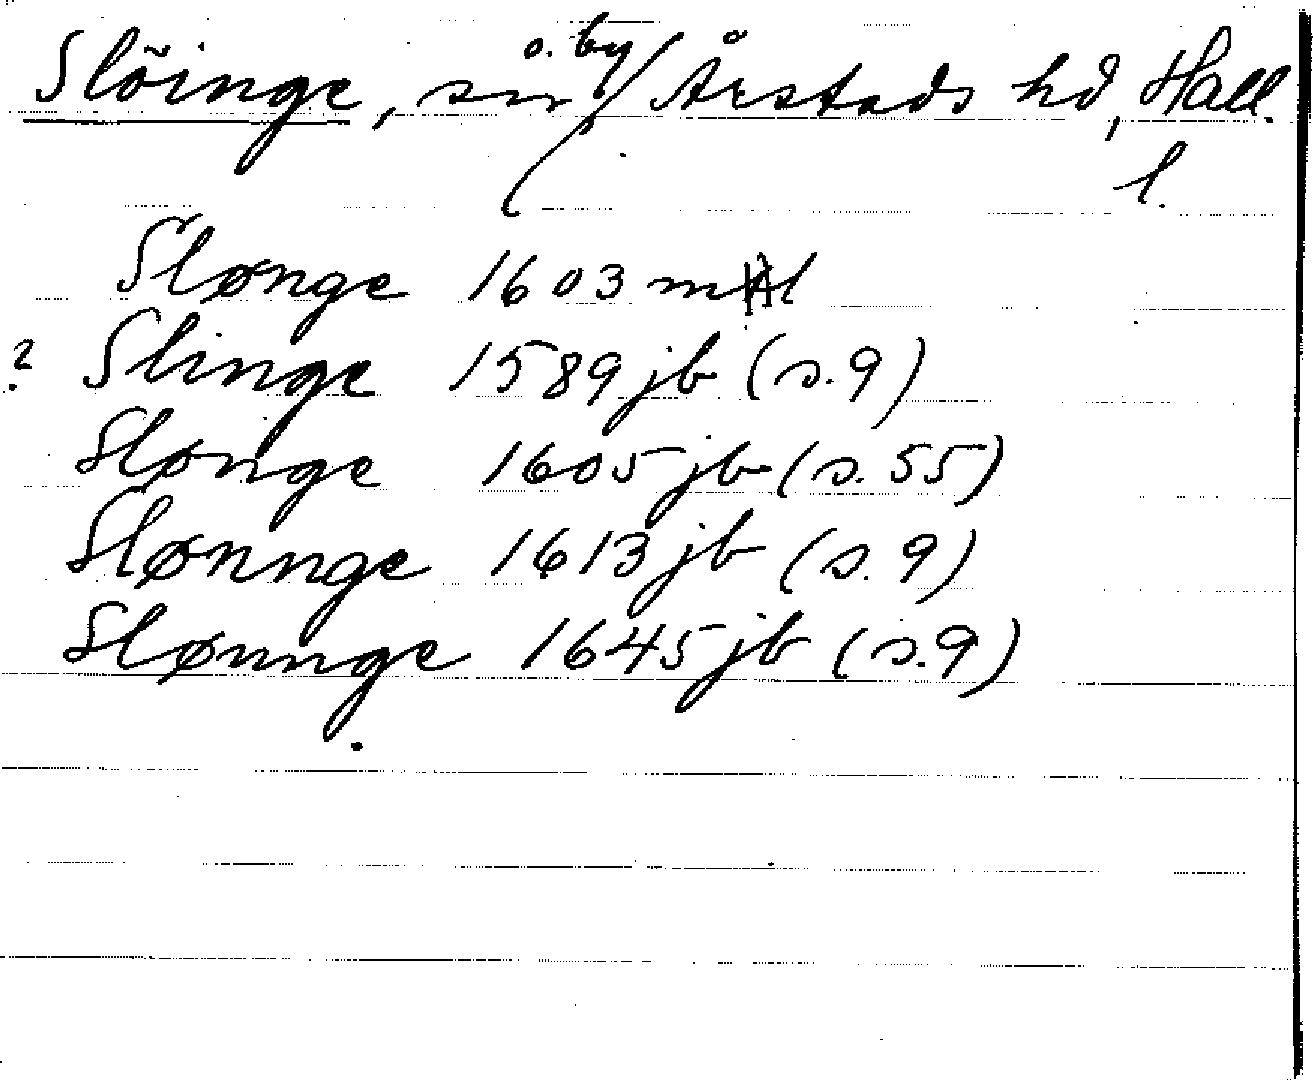 Slöinge, sn o. by Årstads hd, Hall. l.
Slønge 1603 mHl
? Slinge 1589 jb (s. 9)
Slønge 1605 jb (s. 55)
Slønnge 1613 jb (s. 9)
Slønnge 1645 jb (s. 9)